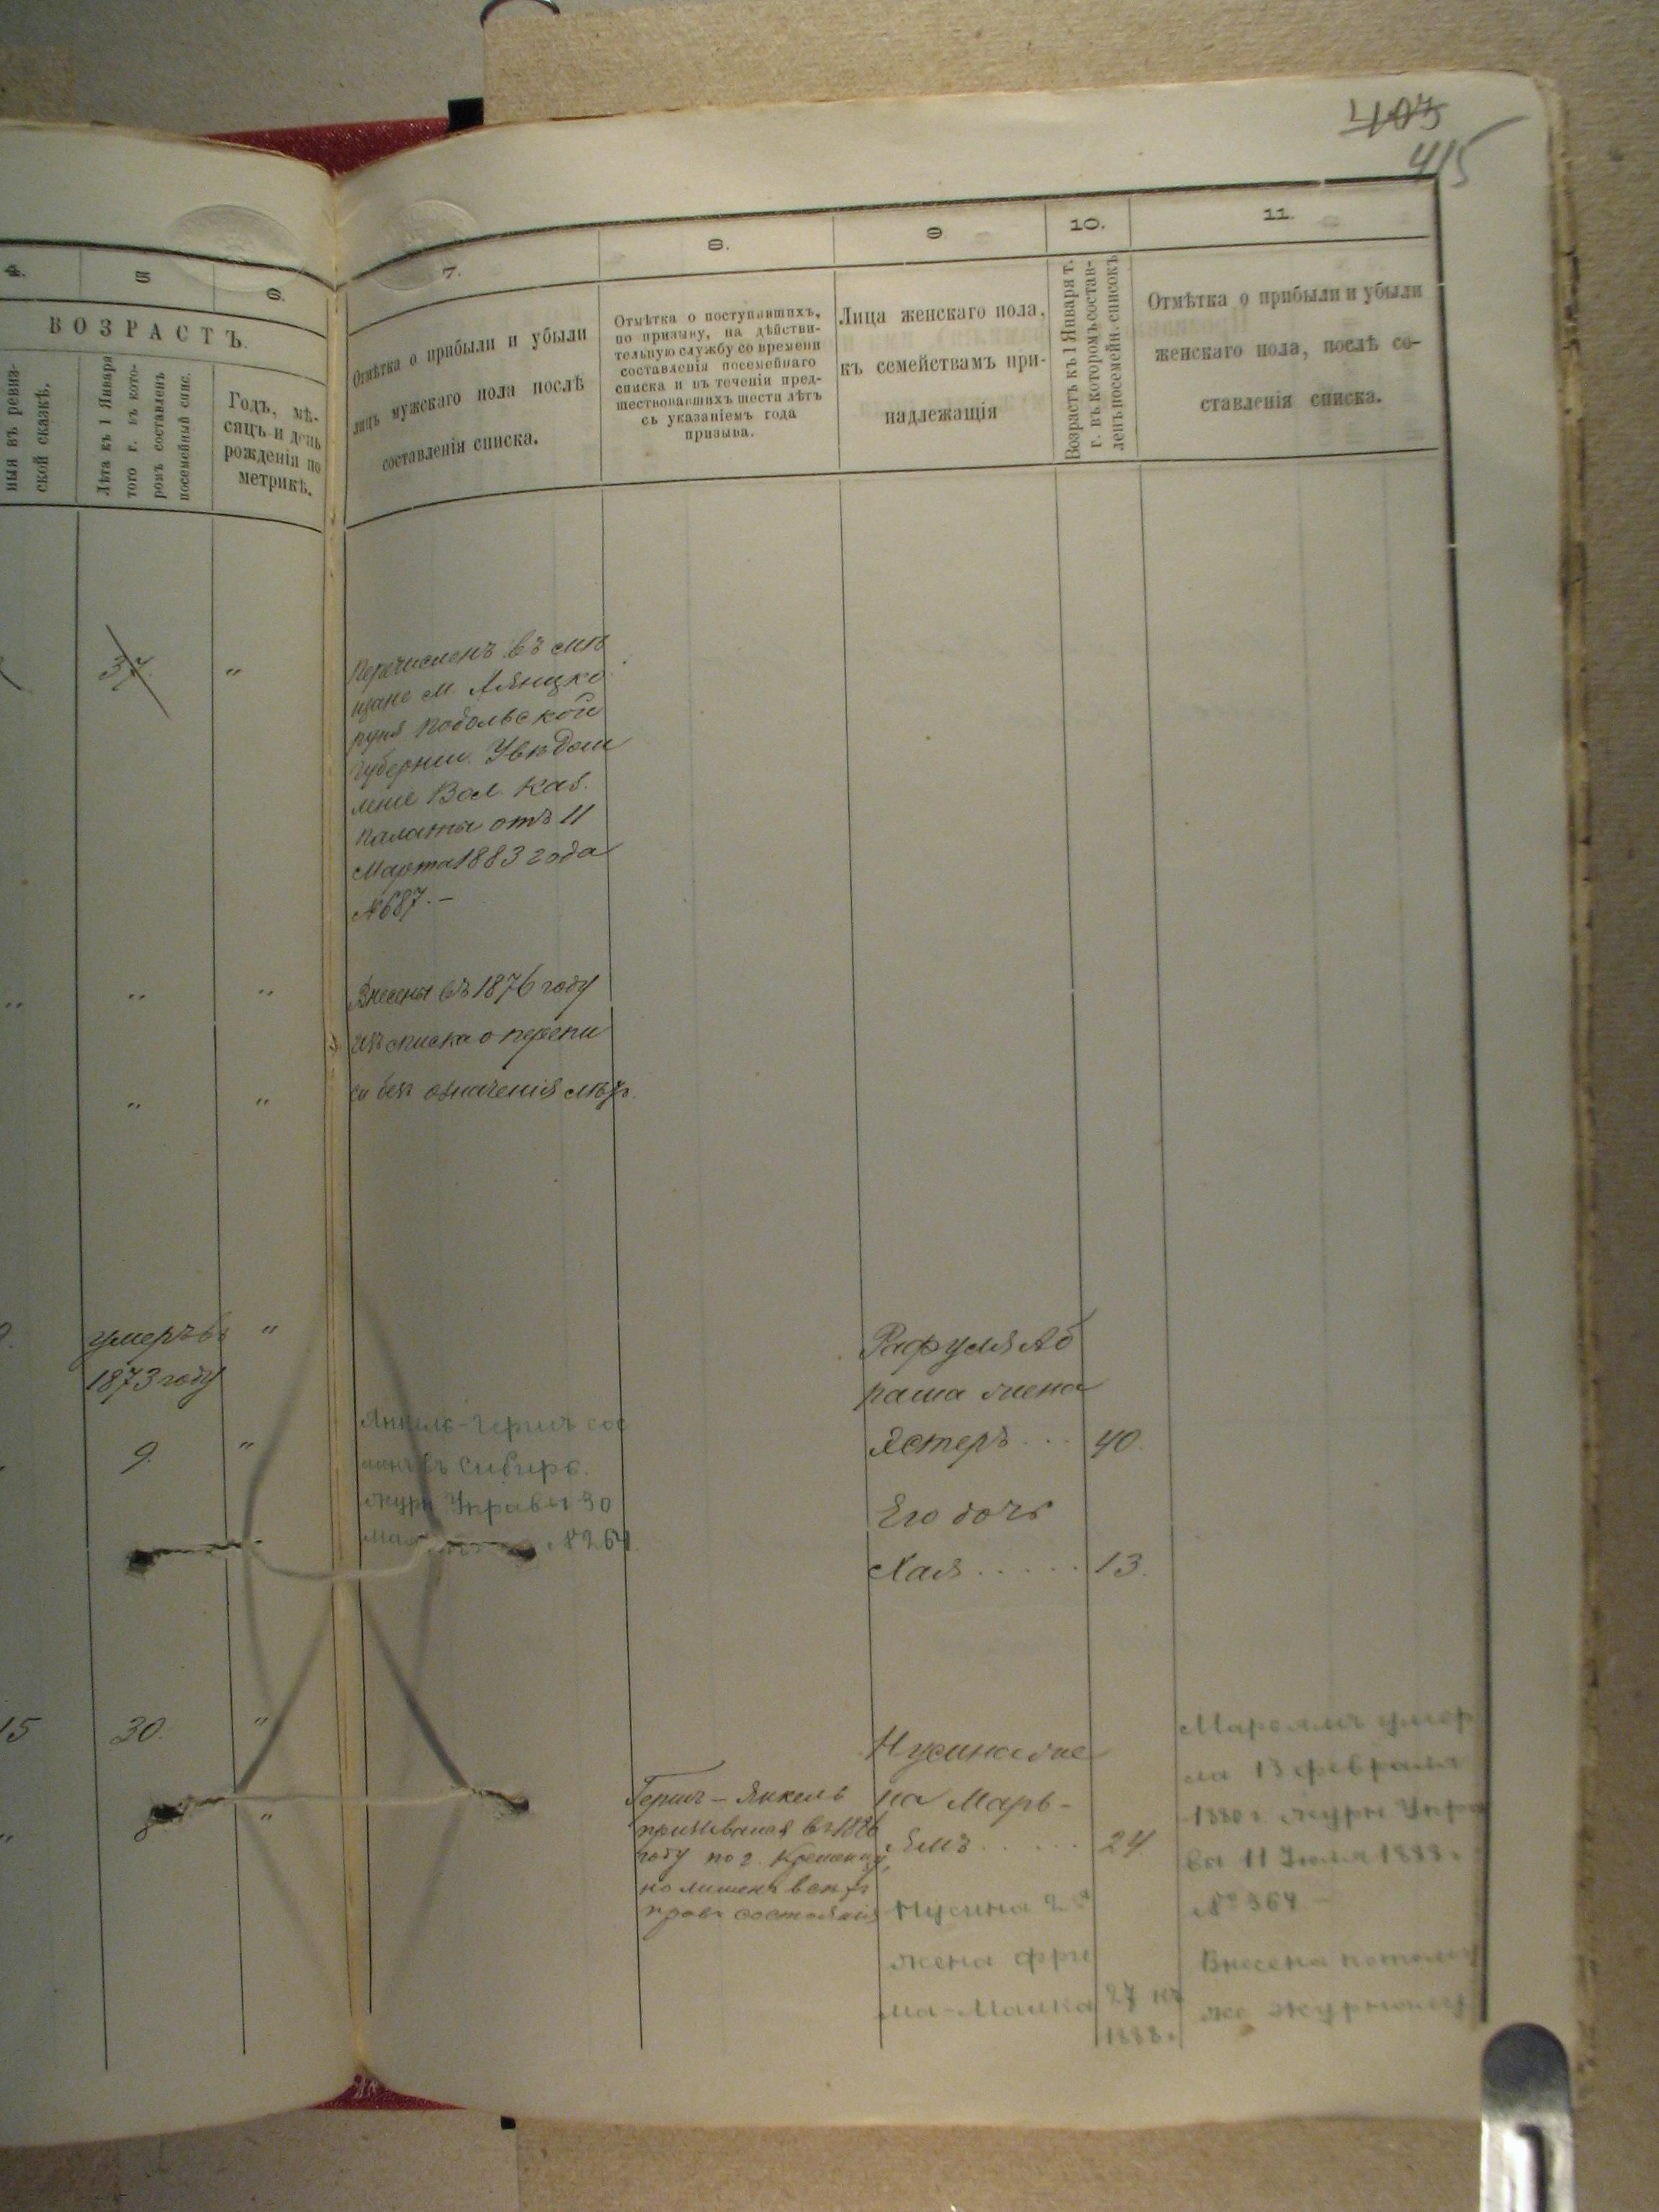 405
415
4.
5
6.
7.
8.
9
10.
11.
ВОЗРАСТЪ.
ныя въ ревиз-
ской сказкѣ.
Лѣта къ 1 Января
того г. въ кото-
ромъ составленъ
посемейный спис.
Годъ, мѣ-
сяцъ и день
рожденія по
метрикѣ.
Отмѣтка о прибыли и убыли
лицъ мужскаго пола послѣ
составленія списка.
Отмѣтка о поступившихъ,
по призыву, на дѣйстви-
тельную службу со времени
составленія посемейнаго
списка и въ теченіи пред-
шествовавшихъ шести лѣтъ
съ указаніемъ года
призыва.
Лица женскаго пола,
къ семействамъ при-
надлежащія
Возрастъ къ 1 Января т.
г. въ которомъ состав-
ленъ посемейн. списокъ
Отмѣтка о прибыли и убыли
женскаго пола, послѣ со-
ставленія списка.
37. "
Перечисленъ въ мѣ
щане м.
Подольской
губерніи. Увѣдом
леніе Вол. Каз.
Палаты отъ 11
Марта 1883 года
№ 687. –
" " "
Внесены въ 1876 году
изъ списка о перепи
си безъ означенія лѣтъ.
" "
умеръ въ "
1873 году
9. "
Янкель-Гершъ сос
въ Сибирь.
Журн Управы 30
Мая № 264.
Рафуля Аб
рама жена
Эстеръ . . . 40.
Его дочь
Хая . . . . . 13.
15 30. "
" "
Гершъ – Янкель
призывался въ 1886
году по г. Кременцу,
но лишенъ всѣхъ
правъ состоянія
Нусина же
на Марь-
ямъ . . . . . 24
Нусина 2я
жена Фри
ма-Малка 27 къ
1888 г.
Марьямъ умер
ла 13 февраля
1880 г Журн Упра
вы 11 Іюля 1888 г.
№ 364 –
Внесена потому
же журналу